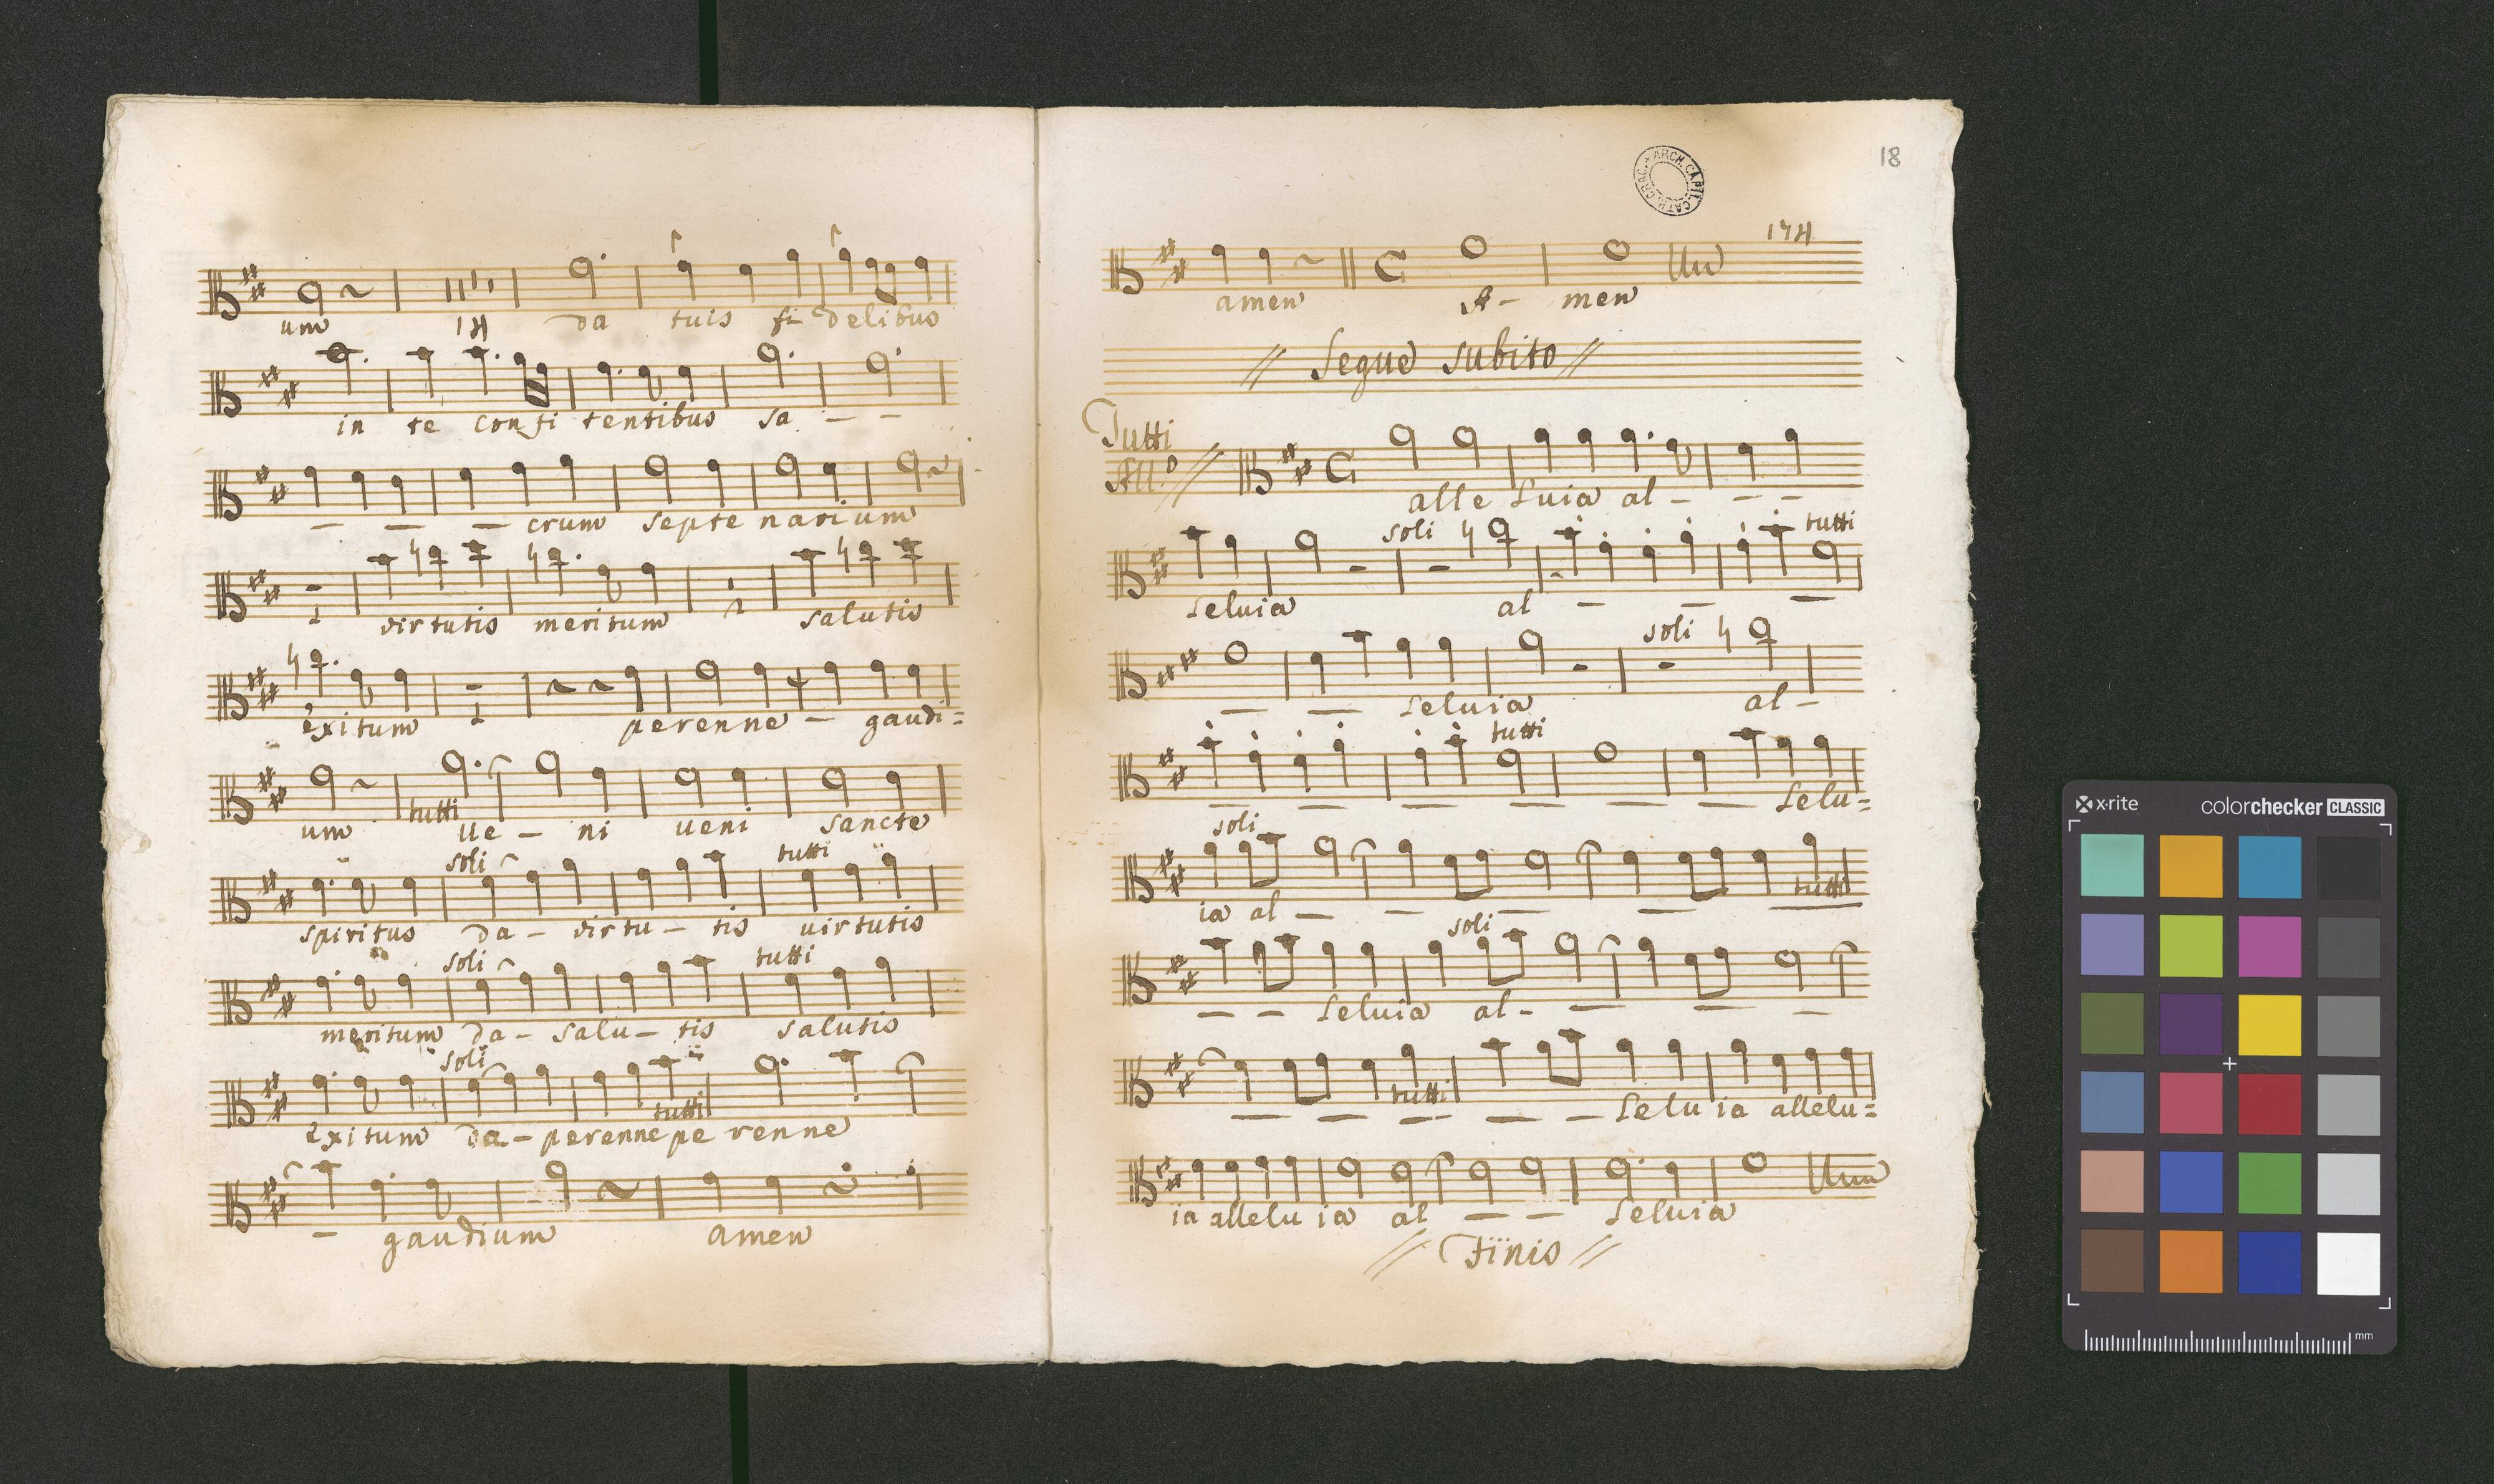 um 14 da tuis fi delibus
in te confi tentibus sa - -
- - - crum septe narium
1 virtutis meritum 2 salutis
exitum 1 perenne - gaudi=
um tutti ue - ni ueni sancte
soli tutti
spiritus da - virtu - tis uirtutis
soli tutti
meritum da - salu - tis salutis
soli
tutti
exitum da - perenne pe renne
- gaudium amen
18
ARCH. CAPIT. CATH. CRAC.
174
amen A - men
// Segue subito //
Tutti
All.o //
C
alle luia al - - -
soli tutti
leluia al - - -
soli
- - leluia al -
tutti
- - - - - - lelu=
soli
tutti
ia al - - - - -
soli
- - leluia al - - - -
tutti
- - - - - lelu ia allelu=
ia allelu ia al - - leluia
// Finis //
x·rite
colorchecker CLASSIC
mm